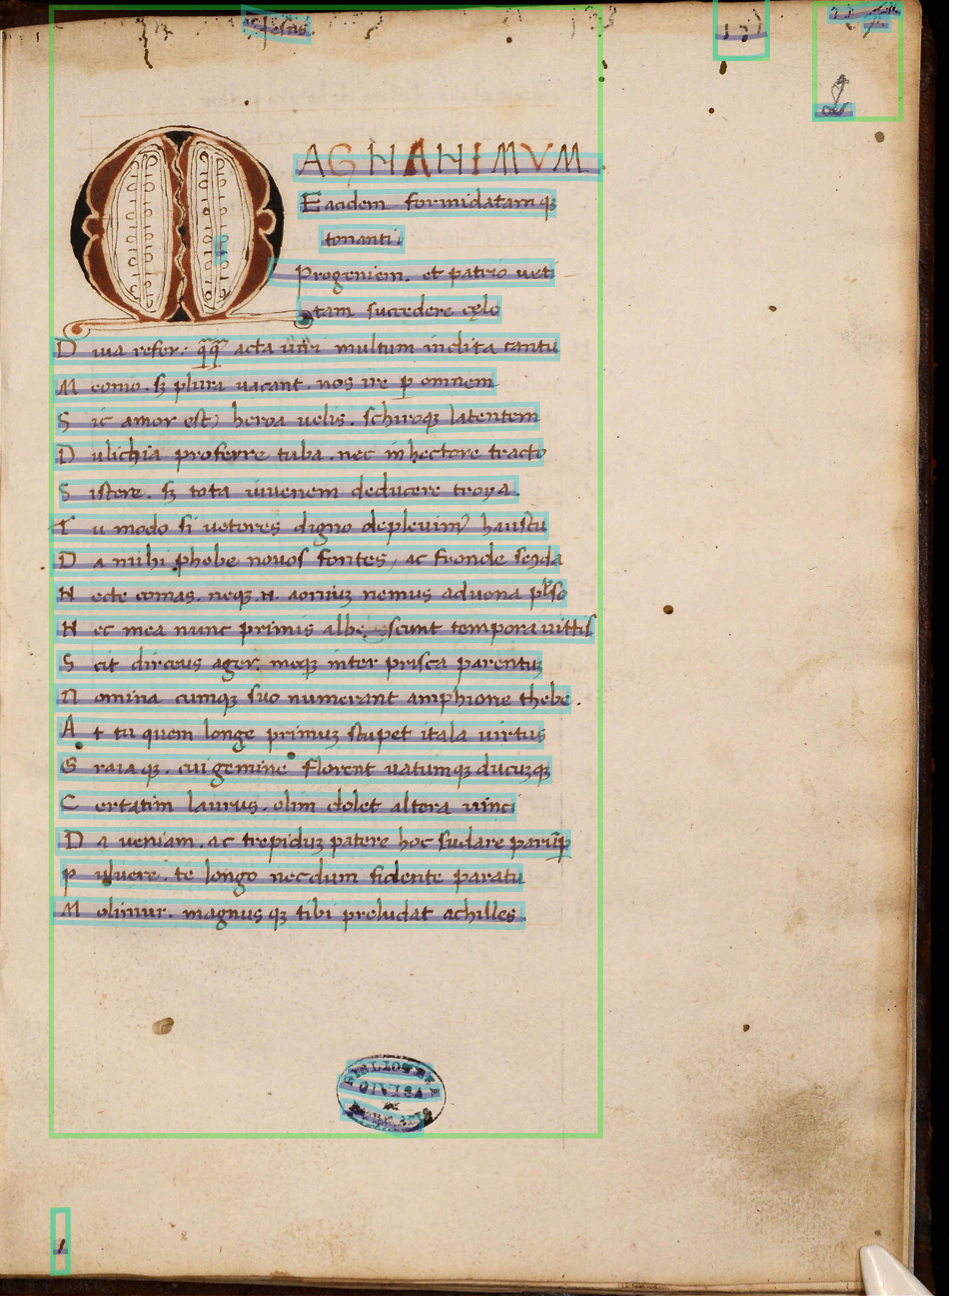 MAGNANIMVM
Eacidem formidatamqꝫ
tonanti.
Progeniem. et patrio veti
tam succedere cęlo
Diua refer. q̃q̃ acta uiri multum inclita cantu
Meonio. sꝫ plura uacant. nos ire ꝑ omnem
Sic amor est) heroa uelis. schiroqꝫ latentem
Dulichia proferre tuba. nec in hectore tracto
Sistere. sꝫ tota iuuenem deducere troya.
Tu modo si veteres digno depleuimꝰ haustu
Da mihi phebe nouos fontes, ac fronde
Necte comas. neqꝫ.n. aoniuꝫ nemus aduena
Nec mea nunc primis albescunt tempora uittis
Scit dirceus ager. meqꝫ inter prisca parentuꝫ
Nomina cumqꝫ suo numerant amphione thebe.
At tu quem longe primuꝫ stupet itala uirtus
Graiaqꝫ. cui gemine florent uatumqꝫ ducuꝫqꝫ
Certatim laurus. olim dolet altera vinci
Da ueniam. ac trepiduꝫ patere hoc sudare parũꝑ
Puluere. te longo necdum fidente paratu
Molimur. magnusqꝫ tibi preludat achilles
BIBLIOTECA
CIVICA
DI
1